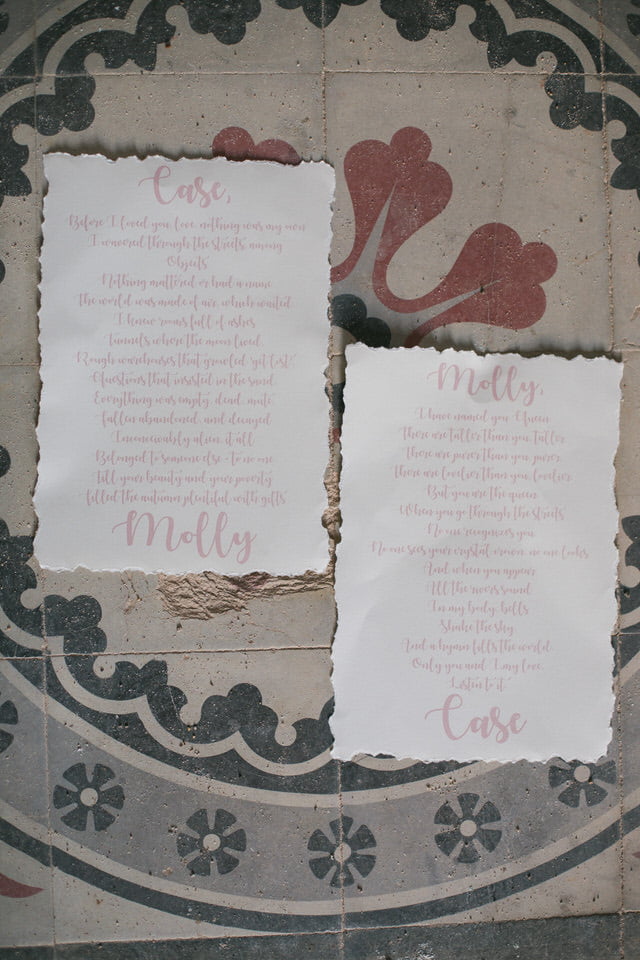 Case,
Before I loved you, love, nothing was my own
I wavered through the streets, among
Objects
Nothing mattered or had a name
The world was made of air, which waited
I knew rooms full of ashes
Tunnels where the moon lived
Rough warehouses that growled 'get lost'
Questions that insisted in the sand
Everything was empty, dead, mute,
fallen abandoned, and decayed
Inconceivably alien, it all
Belonged to someone else - to no one
till your beauty and your poverty
filled the autumn plentiful with gifts
Molly
Molly,
I have named you Queen
There are taller than you, taller
There are purer than you, purer
There are lovelier than you, lovelier
But you are the queen
When you go through the streets
No one recognizes you
No one sees your crystal crown, no one looks
And when you appear
All the rivers sound
In my body, bells
Shake the sky
And a hymn fills the world
Only you and I, my love,
Listen to it
Case